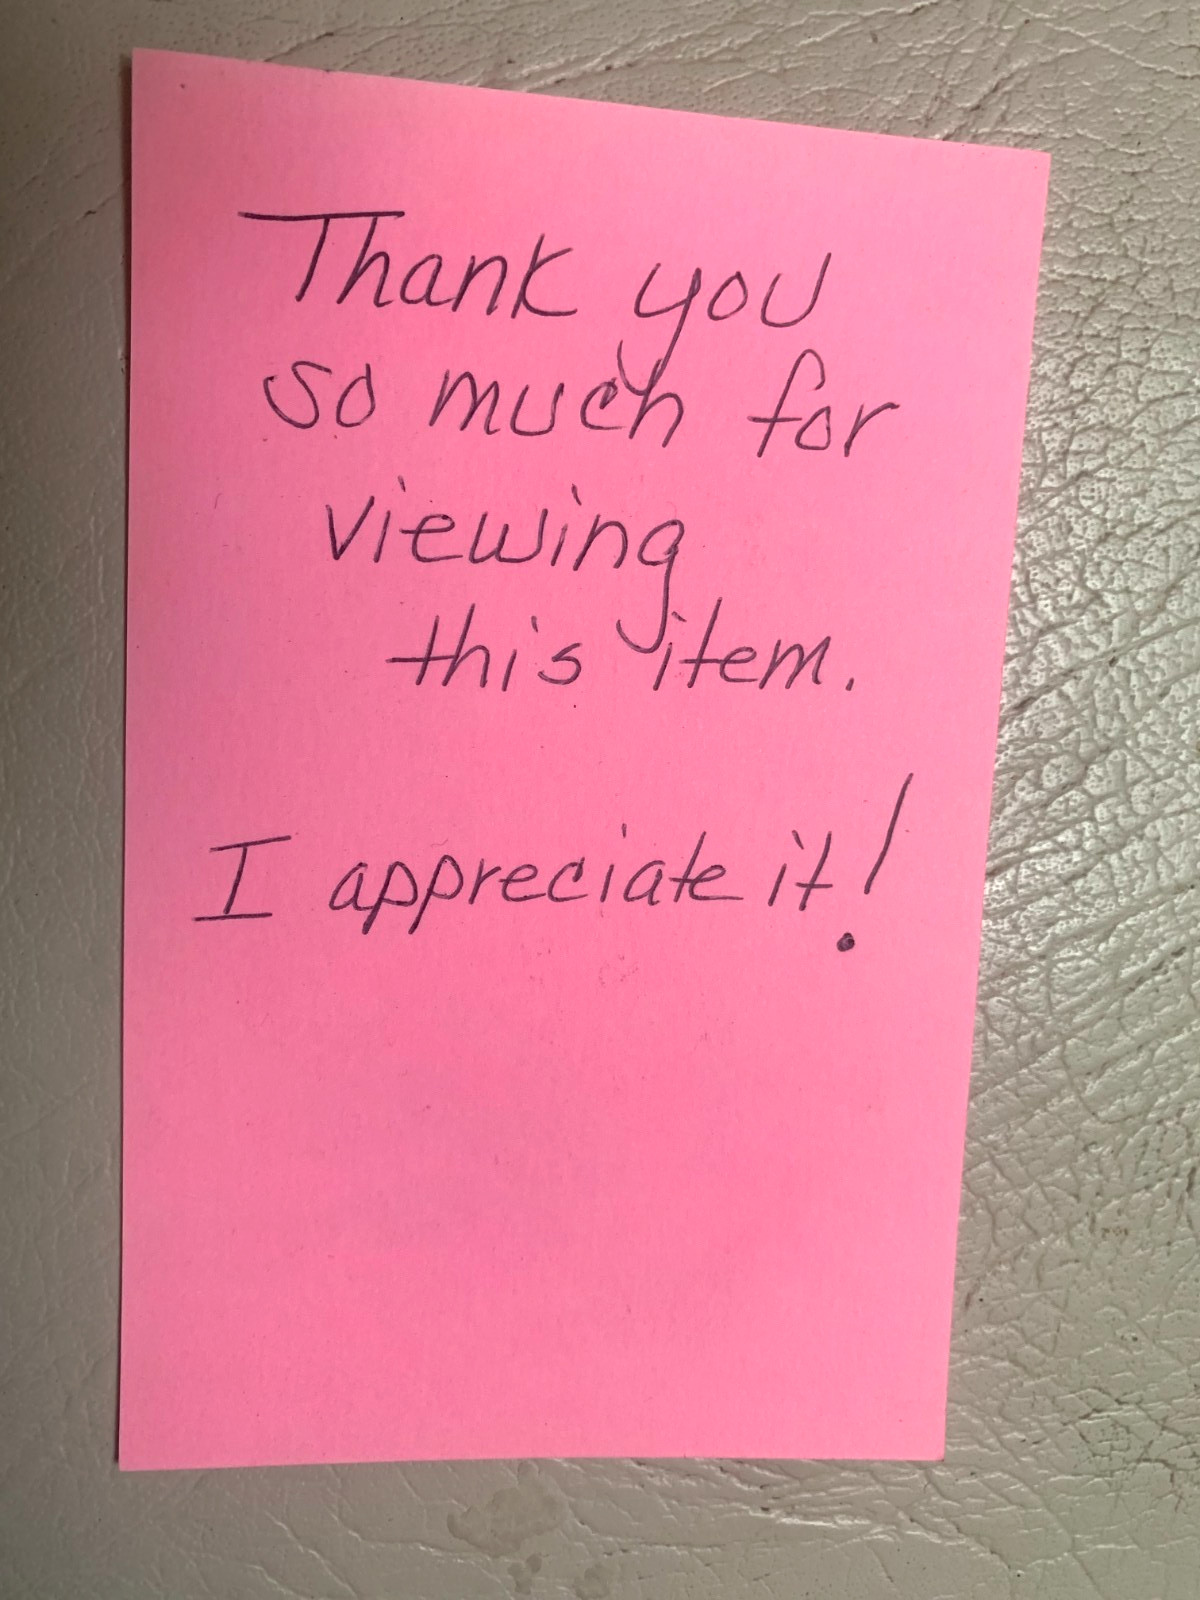 Thank you
so much for
viewing
this item.
I appreciate it!